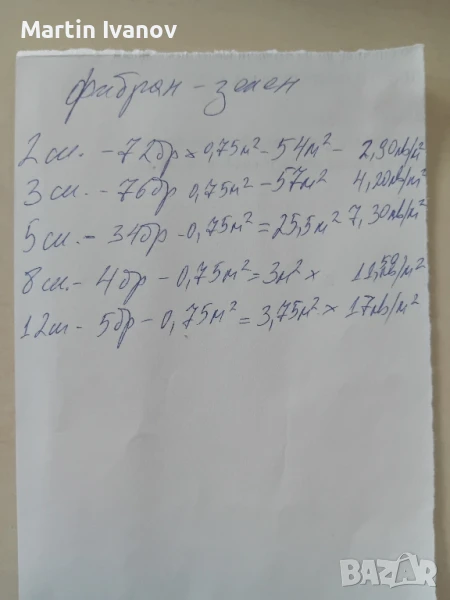 Martin Ivanov
фибран - зелен
2см. - 72бр x 0,75м² - 54м² - 2,90лв/м²
3см. - 76бр 0,75м² - 57м² 4,20лв/м²
5см. - 34бр - 0,75м² = 25,5м² 7,30лв/м²
8см. - 4бр - 0,75м² = 3м² x 11,50лв/м²
12см - 5бр - 0,75м² = 3,75м² x 17лв/м²
BAZAR